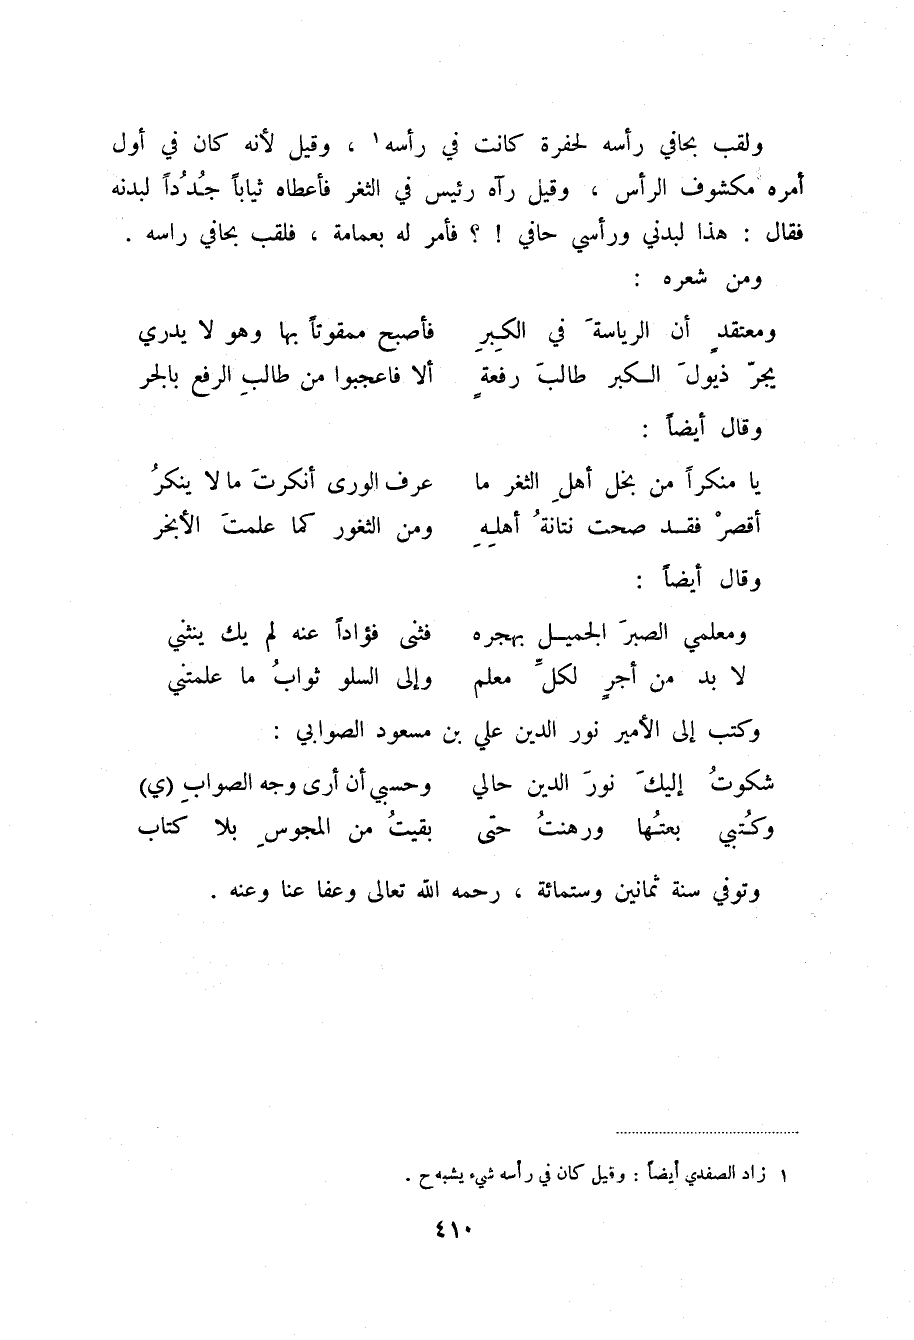 ولقب بحافي رأسه لحفرة كانت في رأسه١ ، وقيل لأنه كان في أول
أمره مكشوف الرأس ، وقيل رآه رئيس في الثغر فأعطاه ثياباً جُدُداً لبدنه
فقال : هذا لبدني ورأسي حافي ! ؟ فأمر له بعمامة ، فلقب بحافي راسه .
ومن شعره :
ومعتقدٍ أن الرياسةَ في الكِبرِ فأصبح ممقوتاً بها وهو لا يدري
يجرّ ذيولَ الكبر طالبَ رفعةٍ ألا فاعجبوا من طالبِ الرفع بالجر
وقال أيضاً :
يا منكراً من بخل أهلِ الثغر ما عرف الورى أنكرتَ ما لا ينكرُ
أقصرْ فقد صحت نتانةُ أهلِهِ ومن الثغور كما علمتَ الأبخر
وقال أيضاً :
ومعلمي الصبرَ الجميل بهجره فثنى فؤاداً عنه لم يك ينثني
لا بد من أجرٍ لكلِّ معلم وإلى السلو ثوابُ ما علمتني
وكتب إلى الأمير نور الدين علي بن مسعود الصوابي :
شكوتُ إليكَ نورَ الدين حالي وحسبي أن أرى وجه الصوابِ (ي)
وكُتبي بعتُها ورهنتُ حتى بقيتُ من المجوسِ بلا كتاب
وتوفي سنة ثمانين وستمائة ، رحمه الله تعالى وعفا عنا وعنه .
١ زاد الصفدي أيضاً : وقيل كان في رأسه شيء يشبه ح .
٤١٠